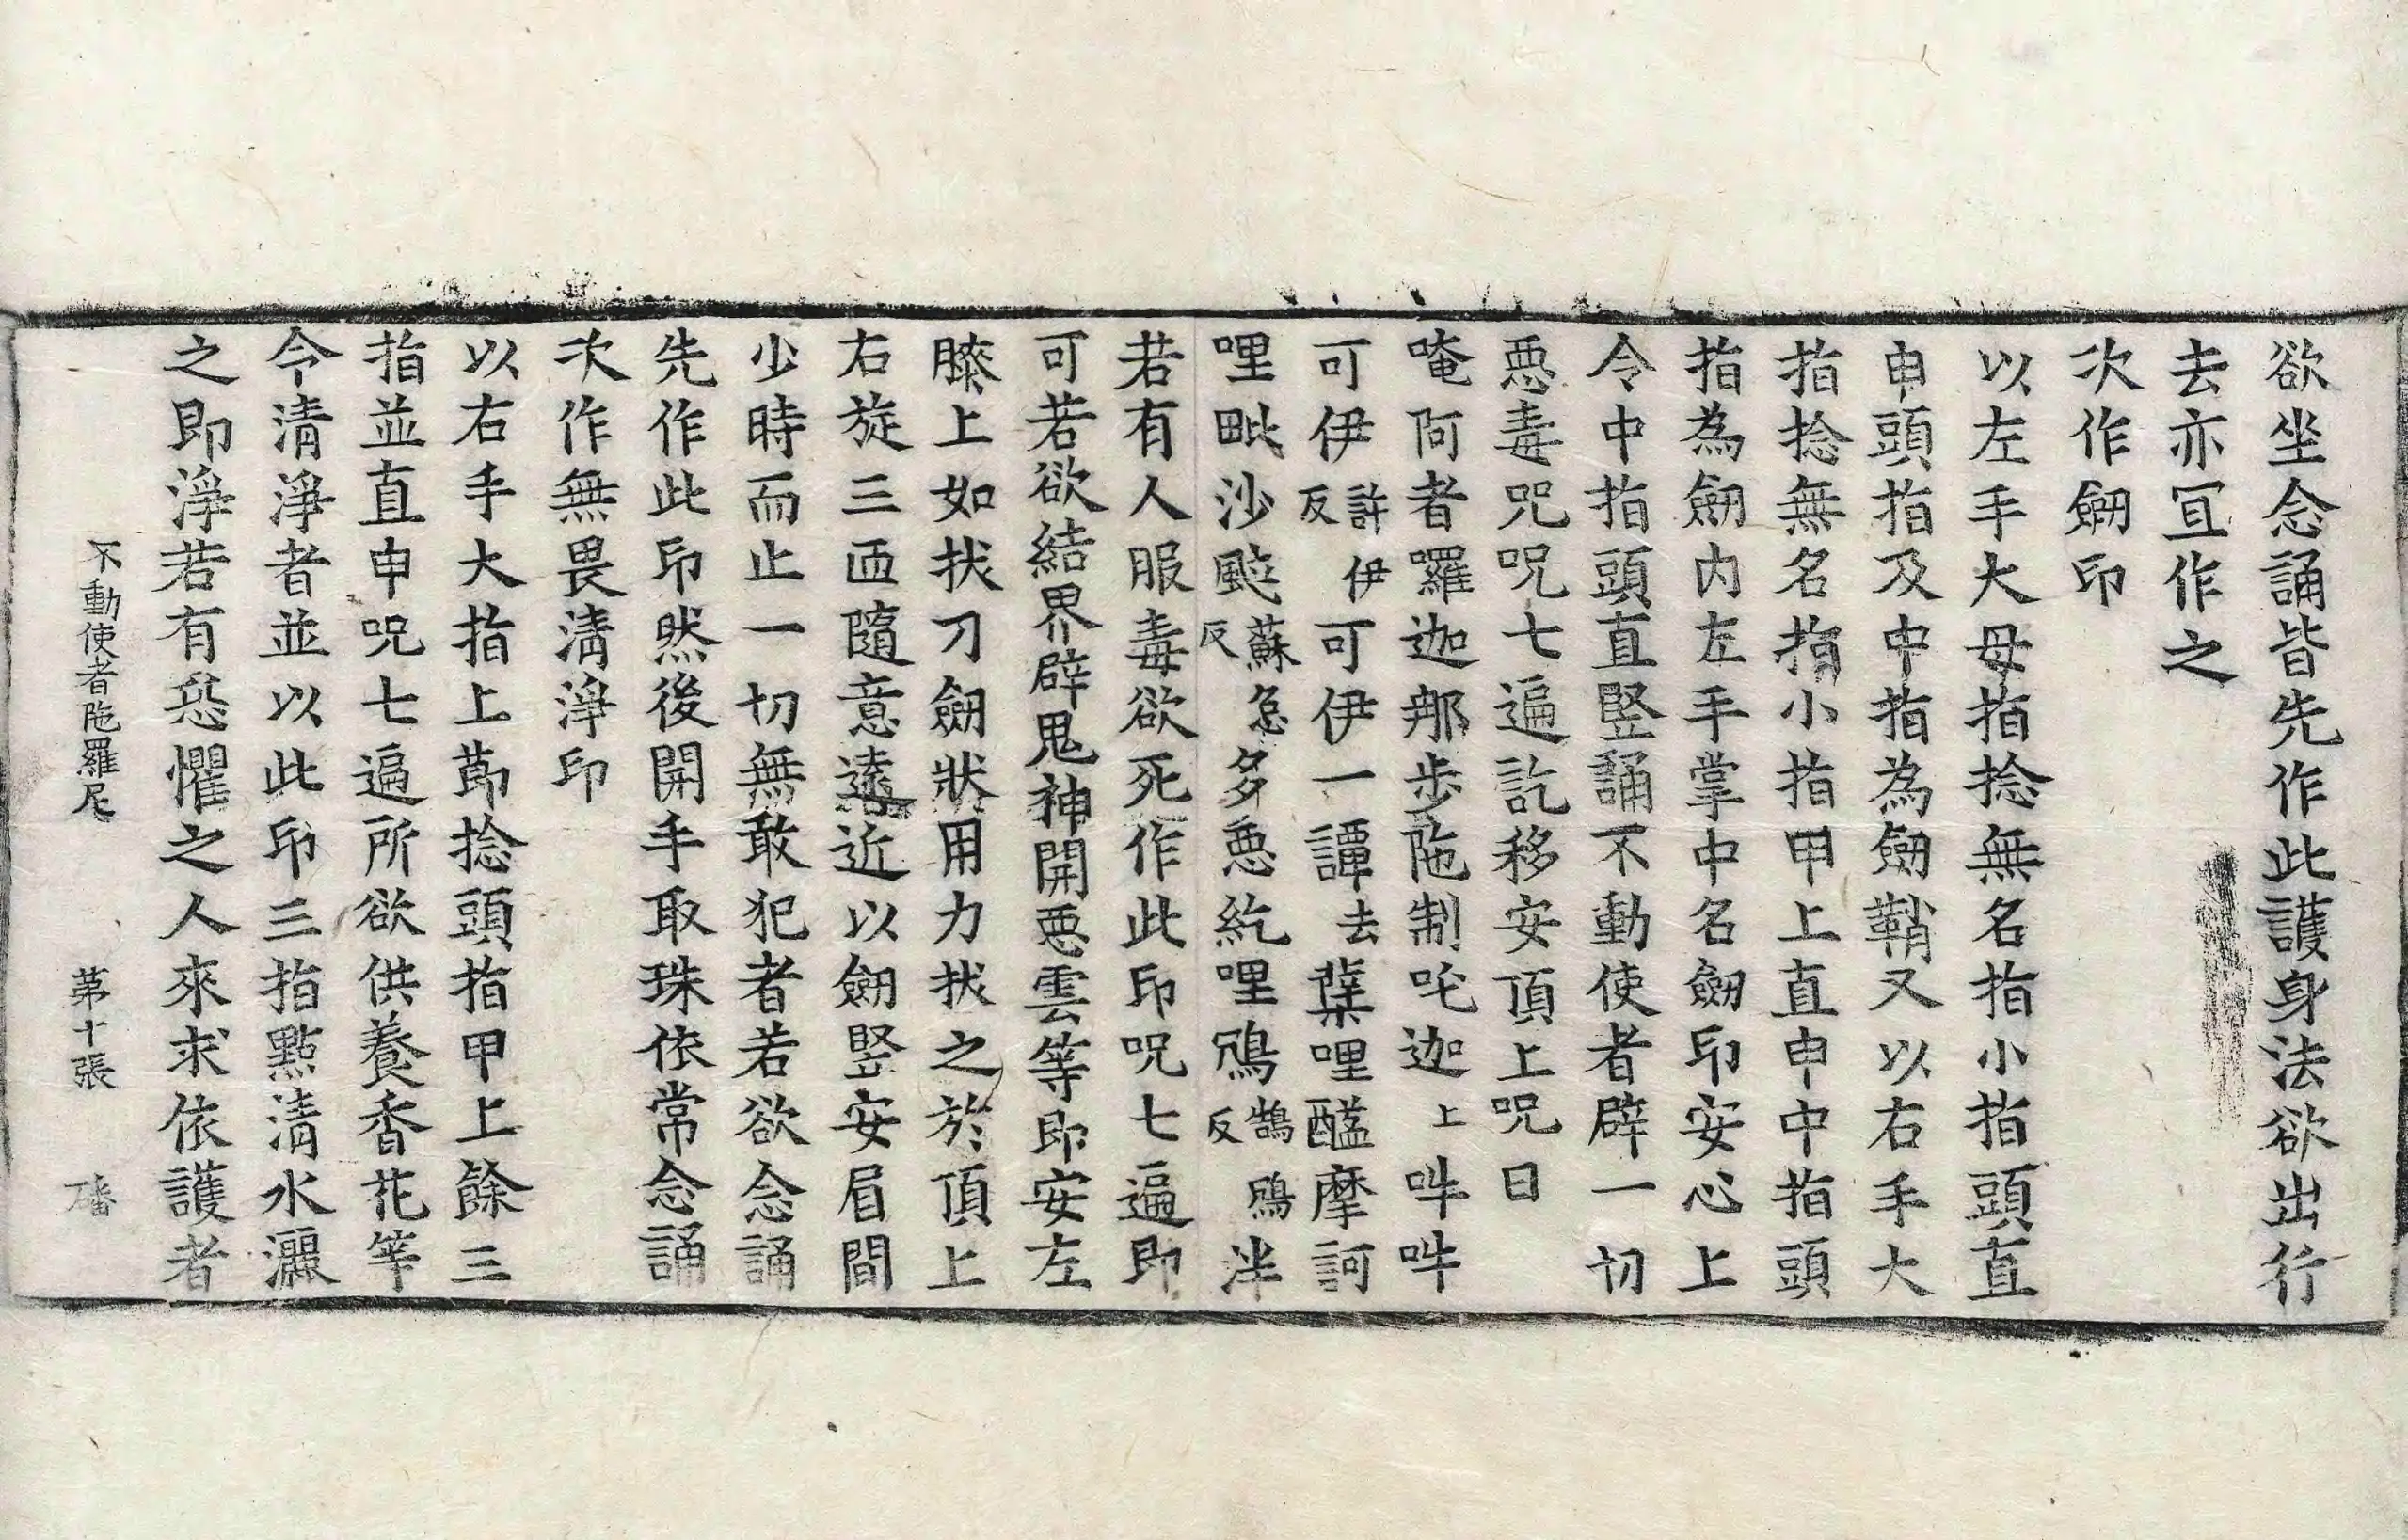 欲坐念誦皆先作此護身法欲出行
去亦冝作之
次作劒印
以左手大母指捻無名指小指頭直
申頭指及中指為劒鞘又以右手大
指捻無名指小指甲上直申中指頭
指為劒内左手掌中名劒印安心上
令中指頭直竪誦不動使者辟一切
惡毒呪呪七遍訖移安頂上呪曰
唵阿者囉迦那步陁制吒迦上吽吽
可伊許伊反可伊一譚去蘖哩醯摩訶
哩毗沙颰蘇急反多惡紇哩鴆鵠鴆反泮
若有人服毒欲死作此印呪七遍即
可若欲結界辟鬼神開惡雲等即安左
膝上如拔刀劒狀用力拔之於頂上
右旋三匝隨意遠近以劒竪安眉間
少時而止一切無敢犯者若欲念誦
先作此印然後開手取珠依常念誦
次作無畏清淨印
以右手大指上莭捻頭指甲上餘三
指並直申呪七遍所欲供養香花等
令清淨者並以此印三指㸃清水灑
之即淨若有恐懼之人來求依護者
不動使者陁羅尼　第十張　磻